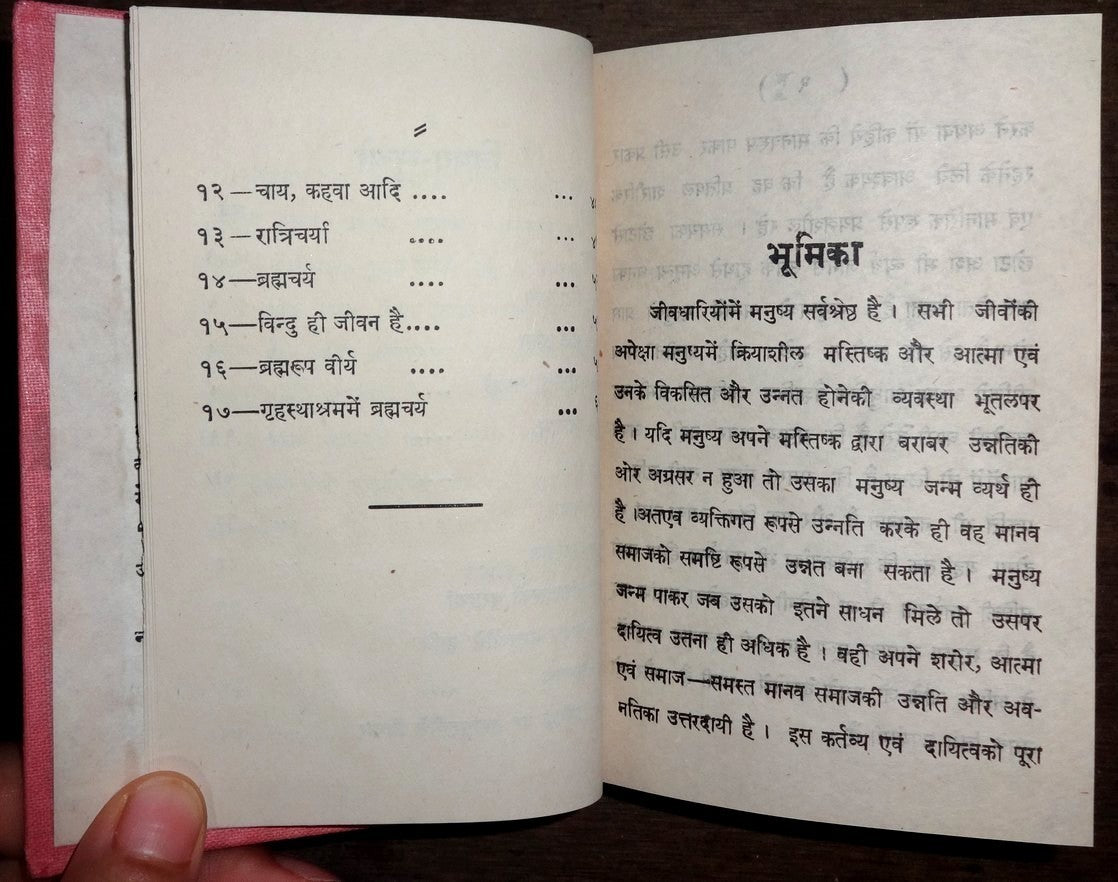 〃
१२ —चाय, कहवा आदि .... ...
१३ — रात्रिचर्या .... ...
१४ —ब्रह्मचर्य .... ...
१५—विन्दु ही जीवन है.... ...
१६—ब्रह्मरूप वीर्य .... ...
१७—गृहस्थाश्रममें ब्रह्मचर्य ...
भूमिका
जीवधारियोंमें मनुष्य सर्वश्रेष्ठ है । सभी जीवोंकी
अपेक्षा मनुष्यमें क्रियाशील मस्तिष्क और आत्मा एवं
उनके विकसित और उन्नत होनेकी व्यवस्था भूतलपर
है । यदि मनुष्य अपने मस्तिष्क द्वारा बराबर उन्नतिकी
ओर अग्रसर न हुआ तो उसका मनुष्य जन्म व्यर्थ ही
है ।अतएव व्यक्तिगत रूपसे उन्नति करके ही वह मानव
समाजको समष्टि रूपसे उन्नत बना सकता है । मनुष्य
जन्म पाकर जब उसको इतने साधन मिले तो उसपर
दायित्व उतना ही अधिक है । वही अपने शरोर, आत्मा
एवं समाज—समस्त मानव समाजकी उन्नति और अव-
नतिका उत्तरदायी है । इस कर्तव्य एवं दायित्वको पूरा